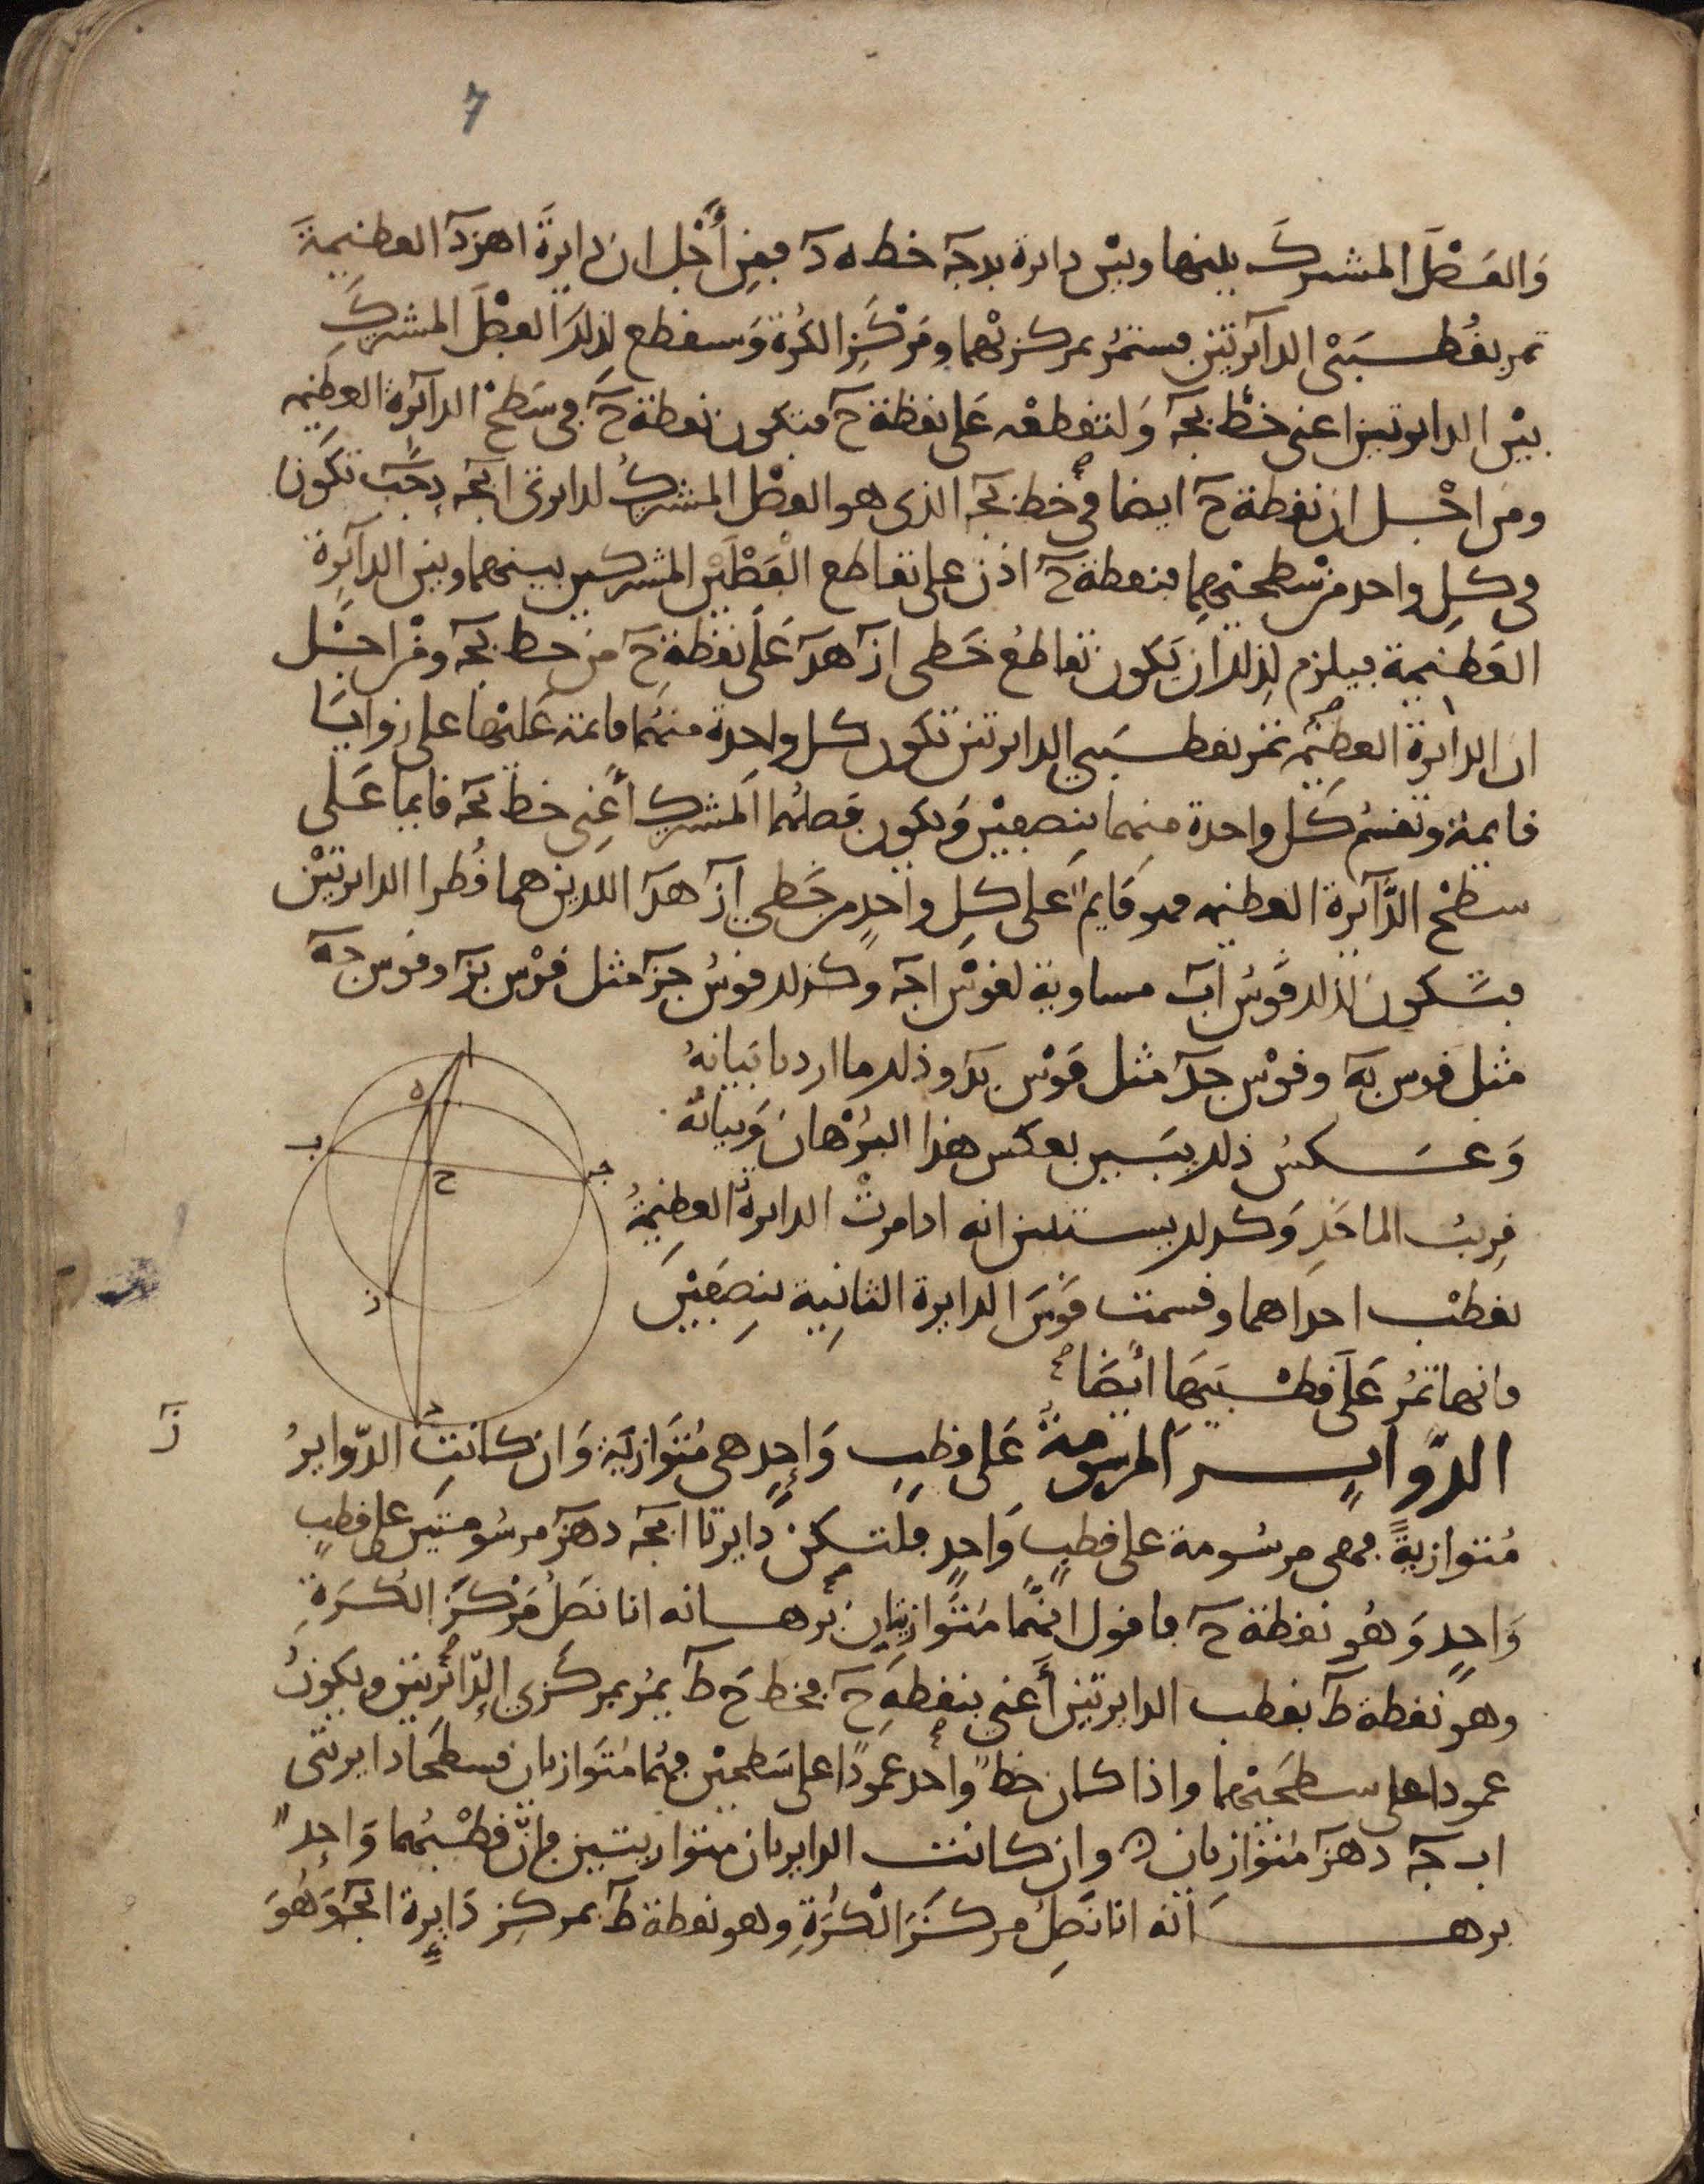 7
والفصل المشترك بينها وبين دايرة بدجه خط ه د فمن أجل ان دايرة اهزد العظيمة
تمر بقطبي الدآيرتين فستمر بمركزيهما ومركز الكرة وستقطع لذلك الفصل المشترك
بين الدايرتين اعني خط بجه ولتقطعه على نقطة ح فتكون نقطة ح في سطح الدآيرة العظيمه
ومن اجل ان نقطة ح ايضا في خط بجه الذي هو الفصل المشترك لدايرتي ابجه تكون
في كل واحد من سطحيهما فنقطة ح اذن على تقاطع الفصلين المشتركين بينهما وبين الدآيرة
العظيمة فيلزم لذلك ان يكون تقاطع خطي از هد على نقطة ح من خط بجه ومن اجل
ان الدايرة العظيمه تمر بقطبي الدايرتين تكون كل واحدة منهما قايمة عليها على زوايا
قايمة وتقسم كل واحدة منهما بنصفين ويكون فصلهما المشترك أعني خط بجه قايما على
سطح الدآيرة العظيمه فهو قايم على كل واحد من خطي از هد اللذين هما قطرا الدايرتين
فتكون لذلك قوس اب مساوية لقوس اجه وكذلك قوس جز مثل قوس بز وقوس جه
مثل قوس به وقوس جد مثل قوس بد وذلك ما اردنا بيانه
وعكس ذلك يتبين بعكس هذا البرهان وبيانه
قريب الماخذ وكذلك يستبين انه اذا مرت الدايرة العظيمة
بقطب احداهما وقسمت قوس الدايرة الثانية بنصفين
فانها تمر على قطبيها أيضا
ز
الدواير المرسومة على قطب واحد هي متوازية وان كانت الدواير
متوازية فهي مرسومة على قطب واحد فلتكن دايرتا ابجه دهز مرسومتين على قطب
واحد وهو نقطة ح فاقول انهما متوازيتان برهانه انا نصل مركز الكرة
وهو نقطة ط بقطب الدايرتين أعني بنقطة ح فخط ح ط يمر بمركزي الدائرتين ويكون
عمودا على سطحيهما واذا كان خط واحد عمودا على سطحين فهما متوازيان فسطحا دايرتي
اب جه دهز متوازيان وان كانت الدايرتان متوازيتين فان قطبيهما واحد
برهانه انا نصل مركز الكرة وهو نقطة ط بمركز دايرة ابجه وهو
ا
ه
ب
ح
جه
ز
د